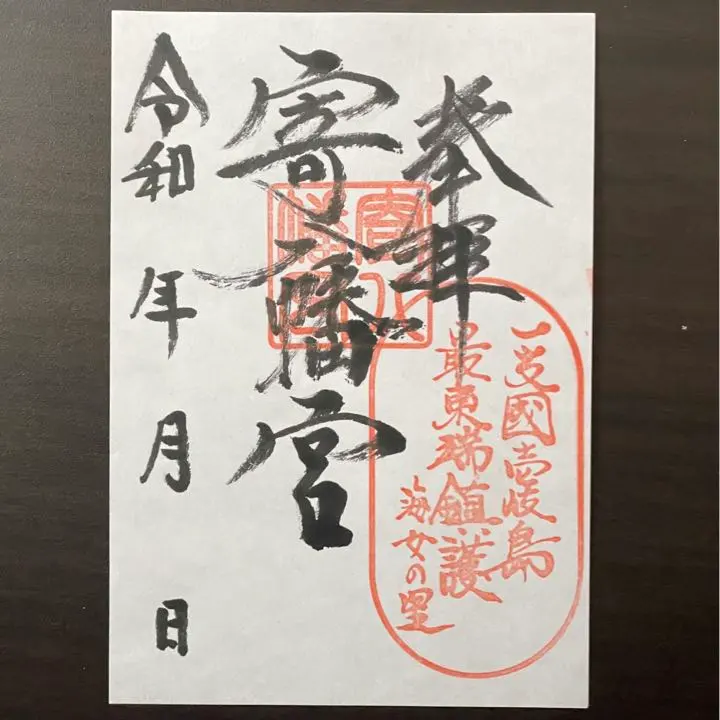 奉拝
一支國壱岐島
最東瑞鎮護
海女の里
寄八幡宮
寄八幡宮
令和 年 月 日